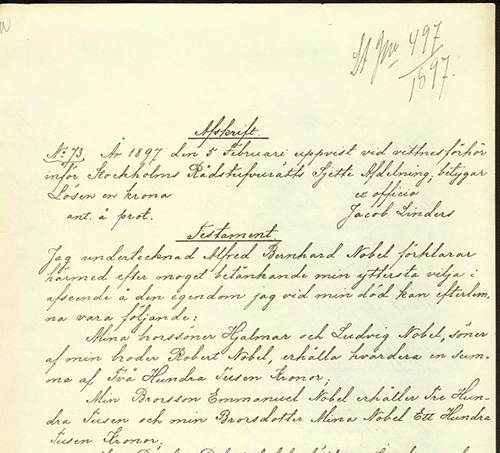 497
1897.
Afskrift.
No 73. År 1897 den 5 Februari uppvist vid vittnesförhör
inför Stockholms Rådstufvurätts Sjette Afdelning; betygar
Lösen en krona ex officio
ant. å prot. Jacob Linders
Testament
Jag undertecknad Alfred Bernhard Nobel förklarar
härmed efter moget betänkande min yttersta vilja i
afseende å den egendom jag vid min död kan efterlem-
na vara följande:
Mina brorssöner Hjalmar och Ludvig Nobel, söner
af min broder Robert Nobel, erhålla hvardera en sum-
ma af Två Hundra Tusen Kronor;
Min Brorsson Emmanuel Nobel erhåller Tre Hun-
dra Tusen och min Brorsdotter Mina Nobel Ett Hundra
Tusen Kronor;